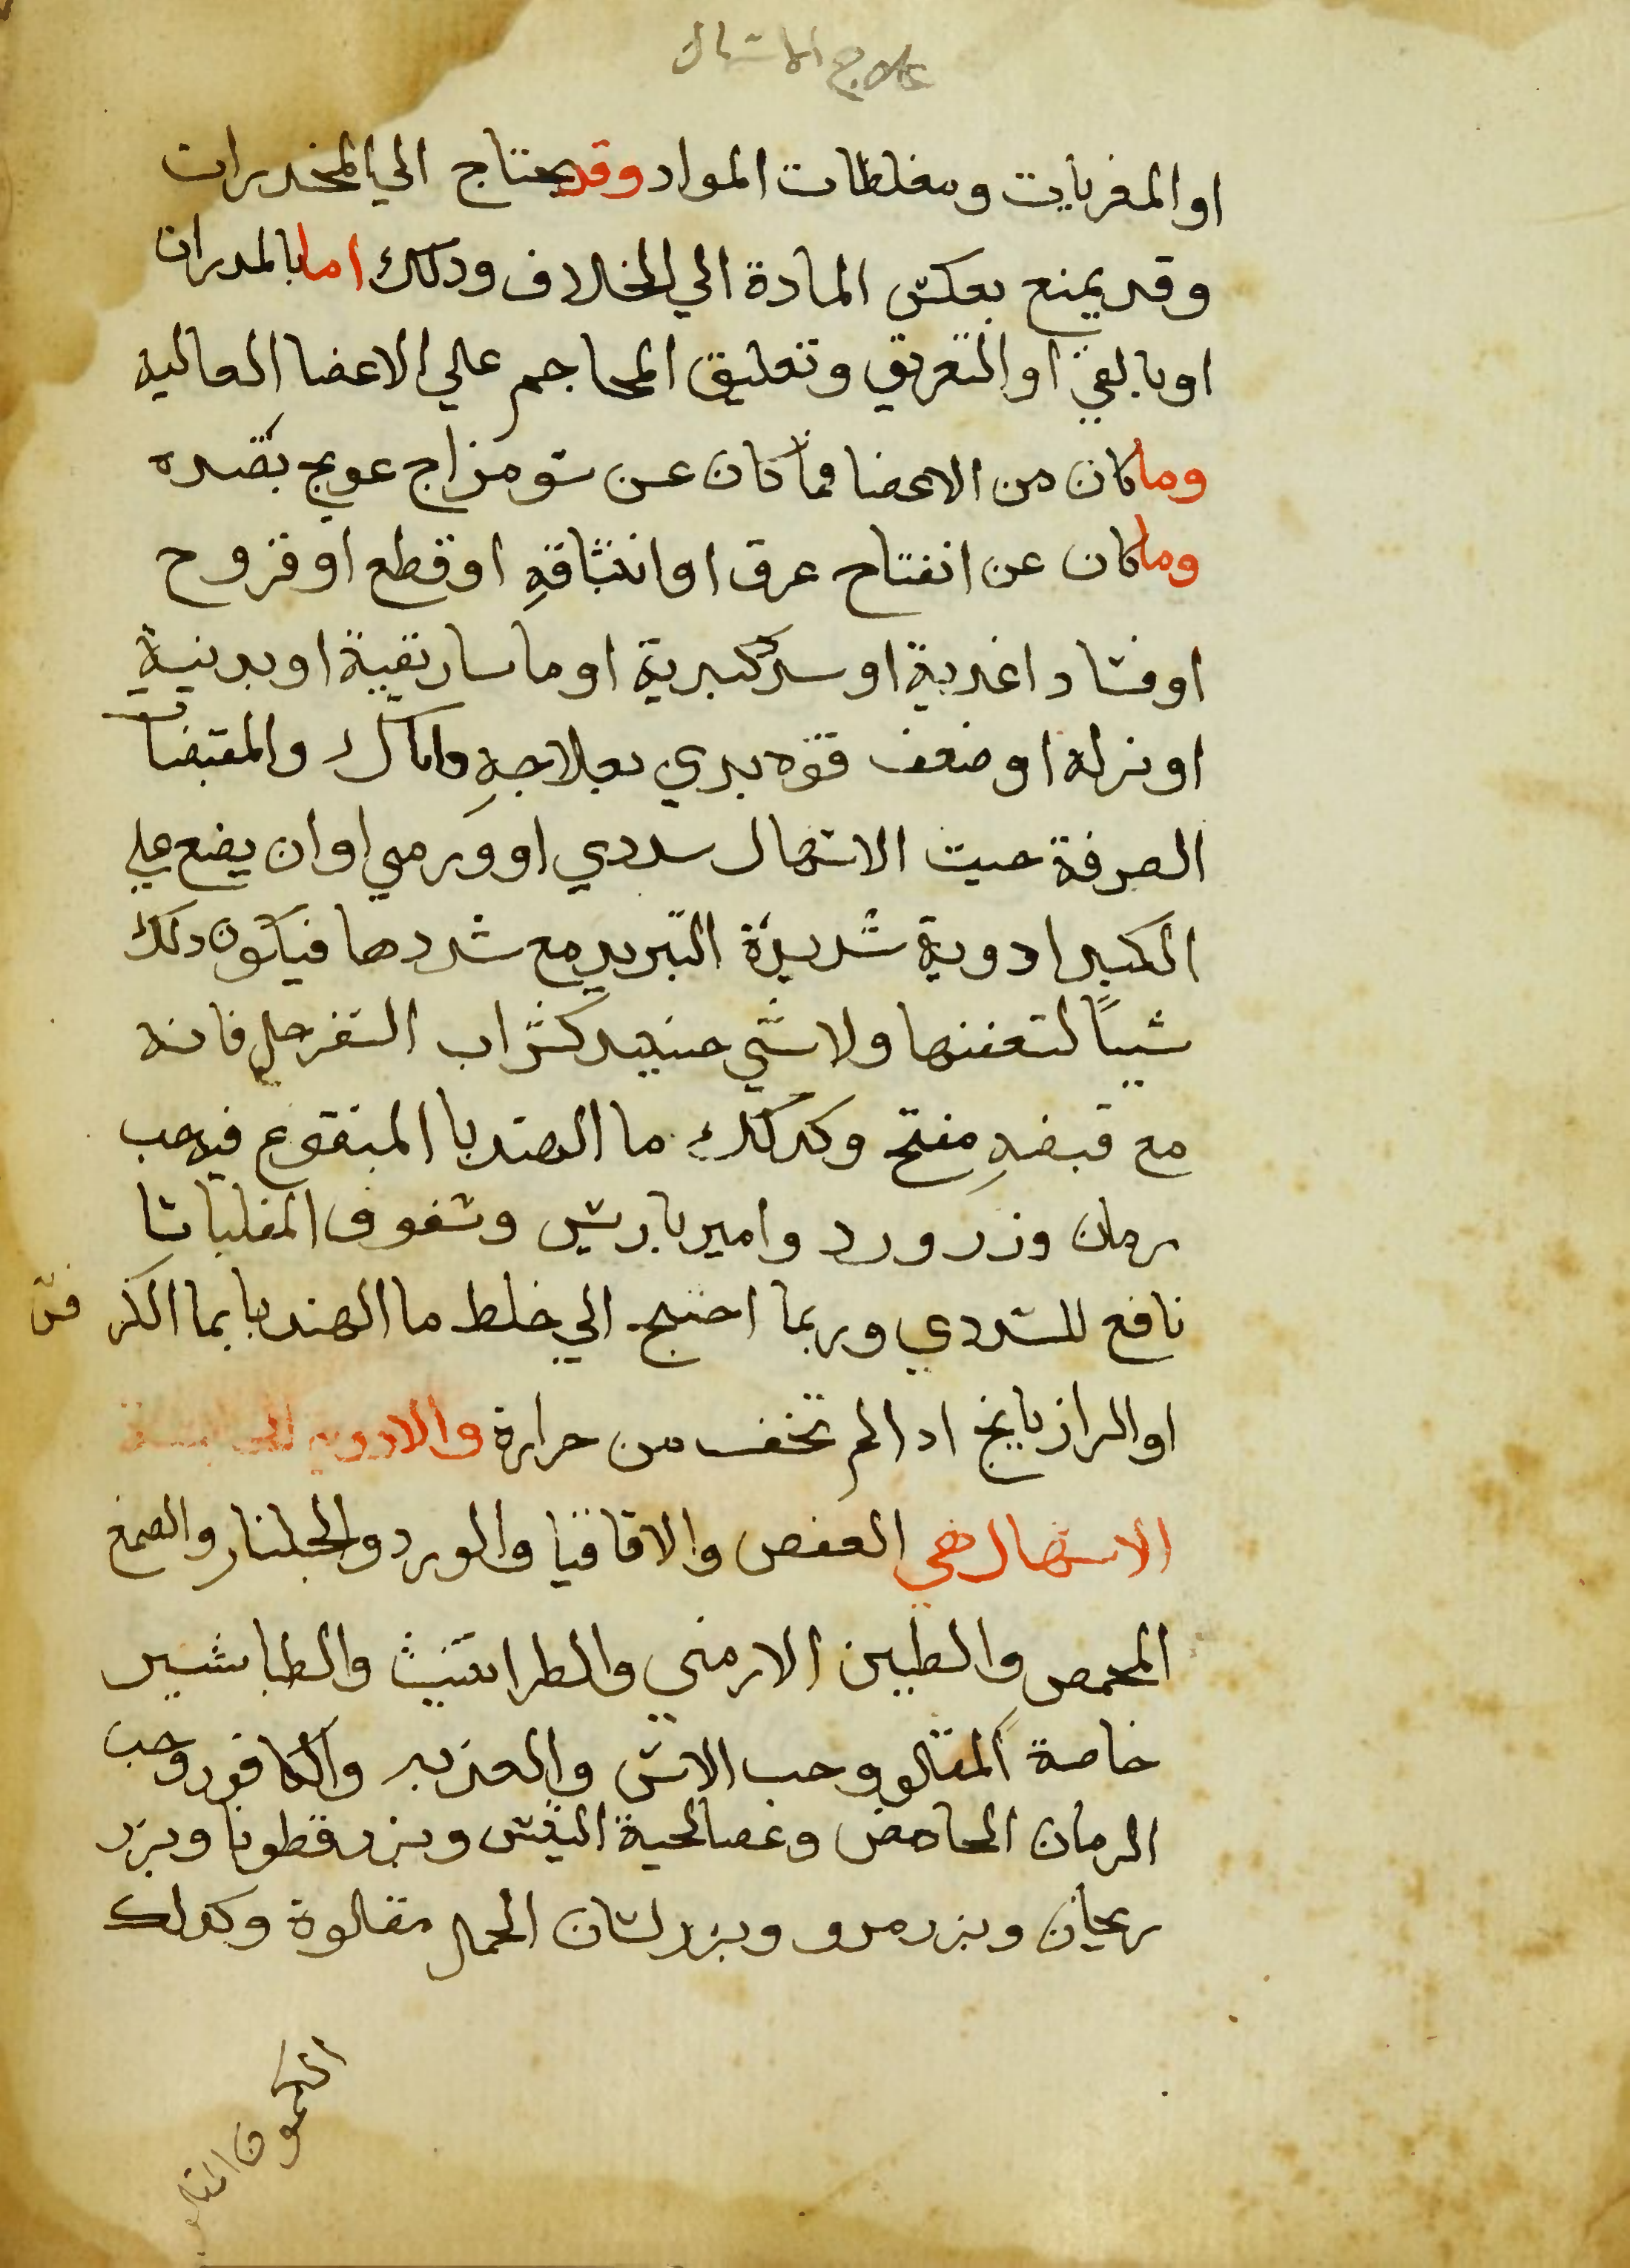 علاج الاسهال
او المغريات ومغلظات المواد وقد يحتاج الي المخدرات
وقد يمنع بعكس المادة الي الخلاف ودلك اما بالمدرات
او بالقي او التعريق وتعليق المحاجم علي الاعضا العالية
وما كان من الاعضا فما كان عن سو مزاج عولج بضده
وما كان عن انفتاح عرق او انبثاقهِ او قطع او قروح
او فساد اغدية او سدد كبدية او ماساريقية او بدنية
او نزلة او ضعف قوه بدي بعلاجهِ واياك والمقبضات
الصرفة حيث الاسهال سددي او ورمي او ان يضع علي
الكبد ادوية شديدة التبريد مع سددها فيكون دلك
سببًا لتعفنها ولا شي حينيد كشراب السفرجل فانه
مع قبضهِ مفتح وكدلك ما الهندبا المنقوع فيه حب
رمان وزر ورد وامير باريس وسفوف المقلياثا
نافع للسددي وربما احتيج الي خلط ما الهندبا بما الكرفس
او الرازيانج ادا لم تخف من حرارة والادويه
الاسهال هي العفص والاقاقيا والورد والجلنار والصمغ
المحمص والطين الارمني والطراثيث والطباشير
خاصة المقلو وحب الاس والكافور وحب
الرمان الحامض وعصا لحية التيس وبزر قطونا وبزر
ريحان وبزر مرو وبزر لسان الحمل مقلوة وكدلك
الكمون